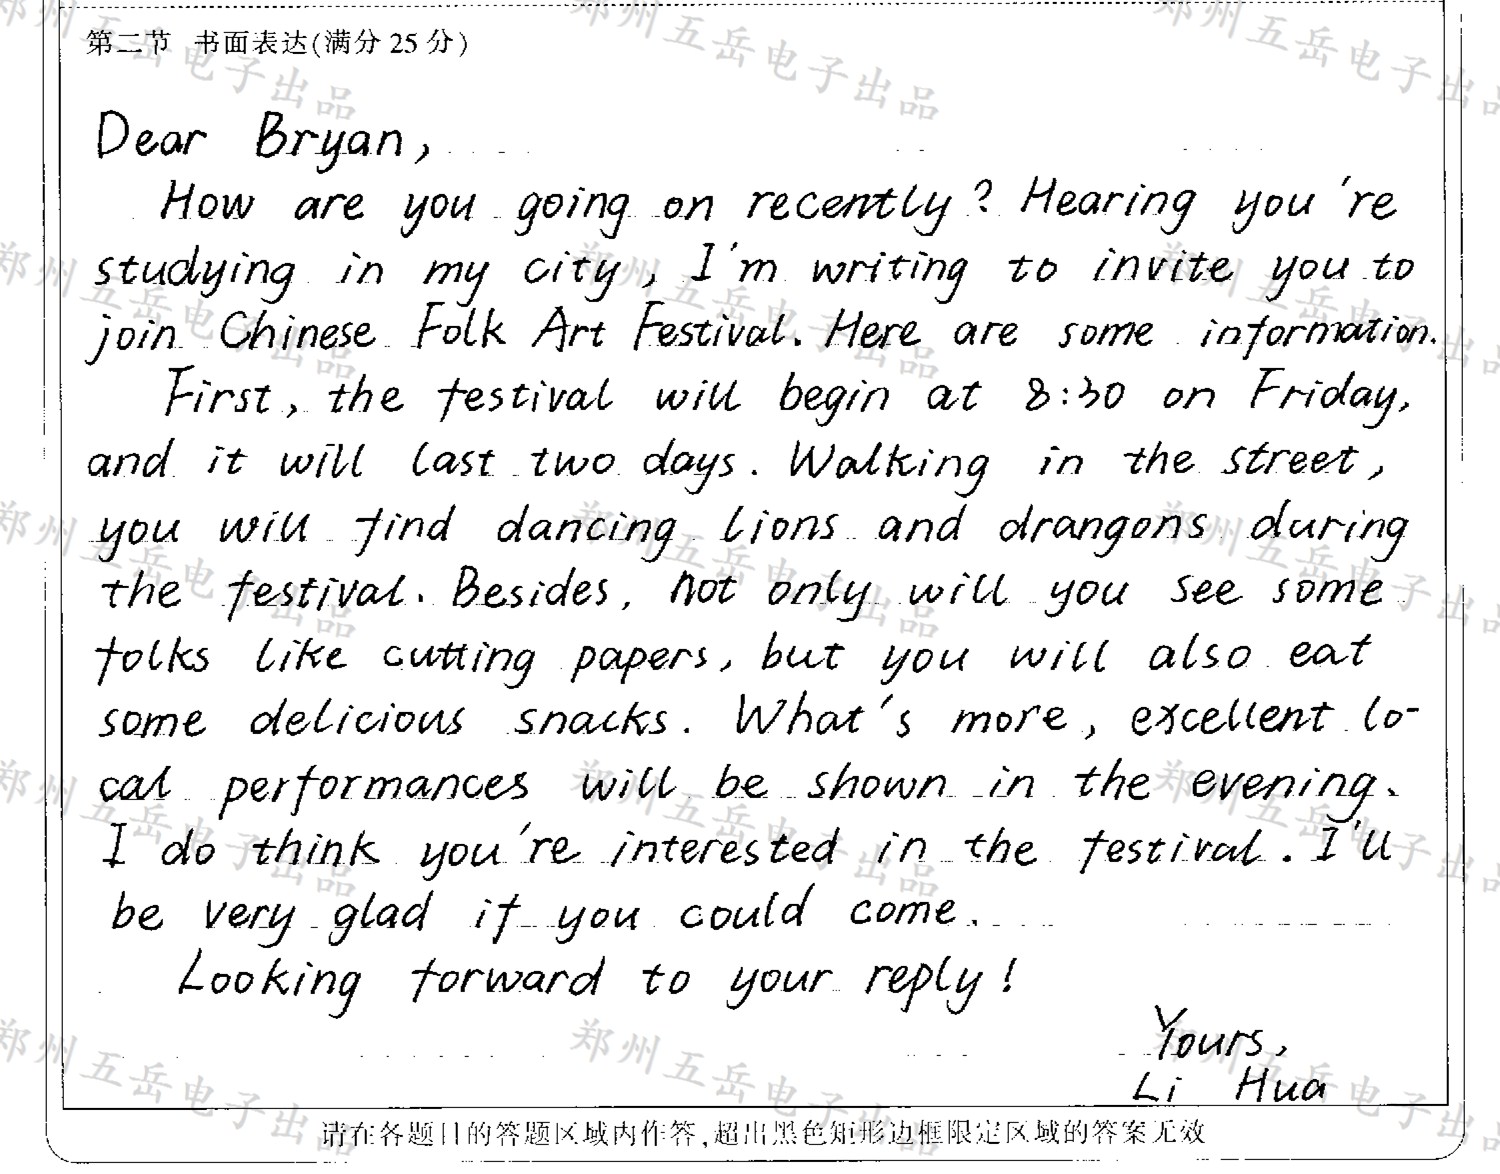 第二节 书面表达(满分25分)
Dear Bryan,
How are you going on recently? Hearing you're
studying in my city, I'm writing to invite you to
join Chinese Folk Art Festival. Here are some information.
First, the festival will begin at 8:30 on Friday,
and it will last two days. Walking in the street,
you will find dancing lions and drangons during
the festival. Besides, not only will you see some
folks like cutting papers, but you will also eat
some delicious snacks. What's more, excellent lo-
cal performances will be shown in the evening.
I do think you're interested in the festival. I'll
be very glad if you could come.
Looking forward to your reply!
Yours,
Li Hua
请在各题目的答题区域内作答,超出黑色矩形边框限定区域的答案无效
郑州五岳电子出品